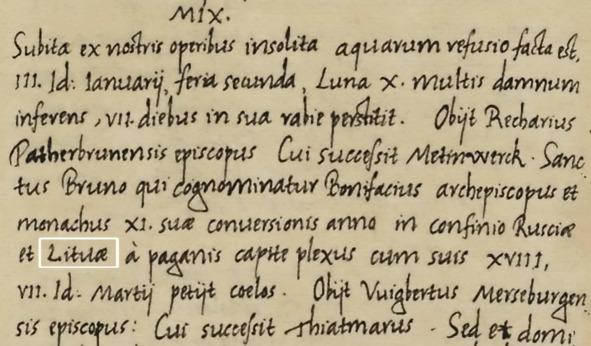 MIX.
Subita ex nostris operibus insolita aquarum refusio facta est,
III. Id: Ianuarij, feria secunda, Luna X. multis damnum
inferens, VII. diebus in sua rabie perstitit. Obijt Recharius
Patherbrunensis episcopus Cui successit Meinwerck. Sanc
tus Bruno qui cognominatur Bonifacius archepiscopus et
monachus XI. suæ conversionis anno in confinio Rusciæ
et Lituæ à paganis capite plexus cum suis XVIII,
VII. Id: Martij petijt coelos. Obijt Vuigbertus Merseburgen
sis episcopus: Cui successit Thiatmarus. Sed et domi